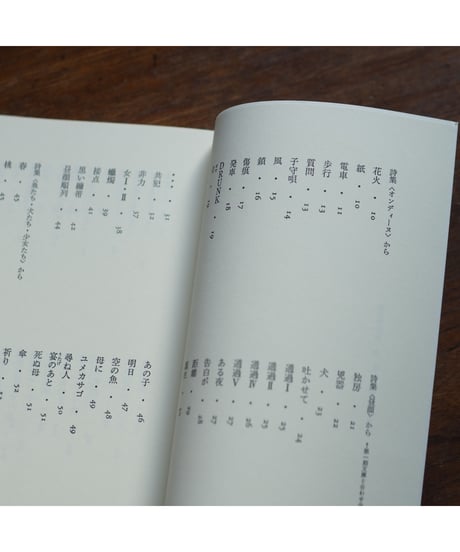 詩集〈オンディーヌ〉から
花火・10
紙・10
電車・11
歩行・13
質問・13
子守唄・14
風・15
鎖・16
傷痕・17
発車・18
DRUNK・19
詩集〈昼顔〉から
独房・21
兇器・22
犬・23
吐かせて・24
通過Ⅰ・24
通過Ⅱ・25
通過Ⅲ・25
通過Ⅳ・25
通過Ⅴ・27
ある夜・27
告白が・28
距離・29
共犯・31
非力・37
女Ⅰ・Ⅱ・38
蟻塚・39
接点・41
黒い繃帯・42
昼顔順列・44
詩集〈魚たち・犬たち・少女たち〉から
春・45
桃・45
あの子・46
明日・47
空の魚・48
母に・49
ユメカサゴ・49
尋ね人・50
宴のあと・51
死ぬ母・51
傘・52
祈り・52